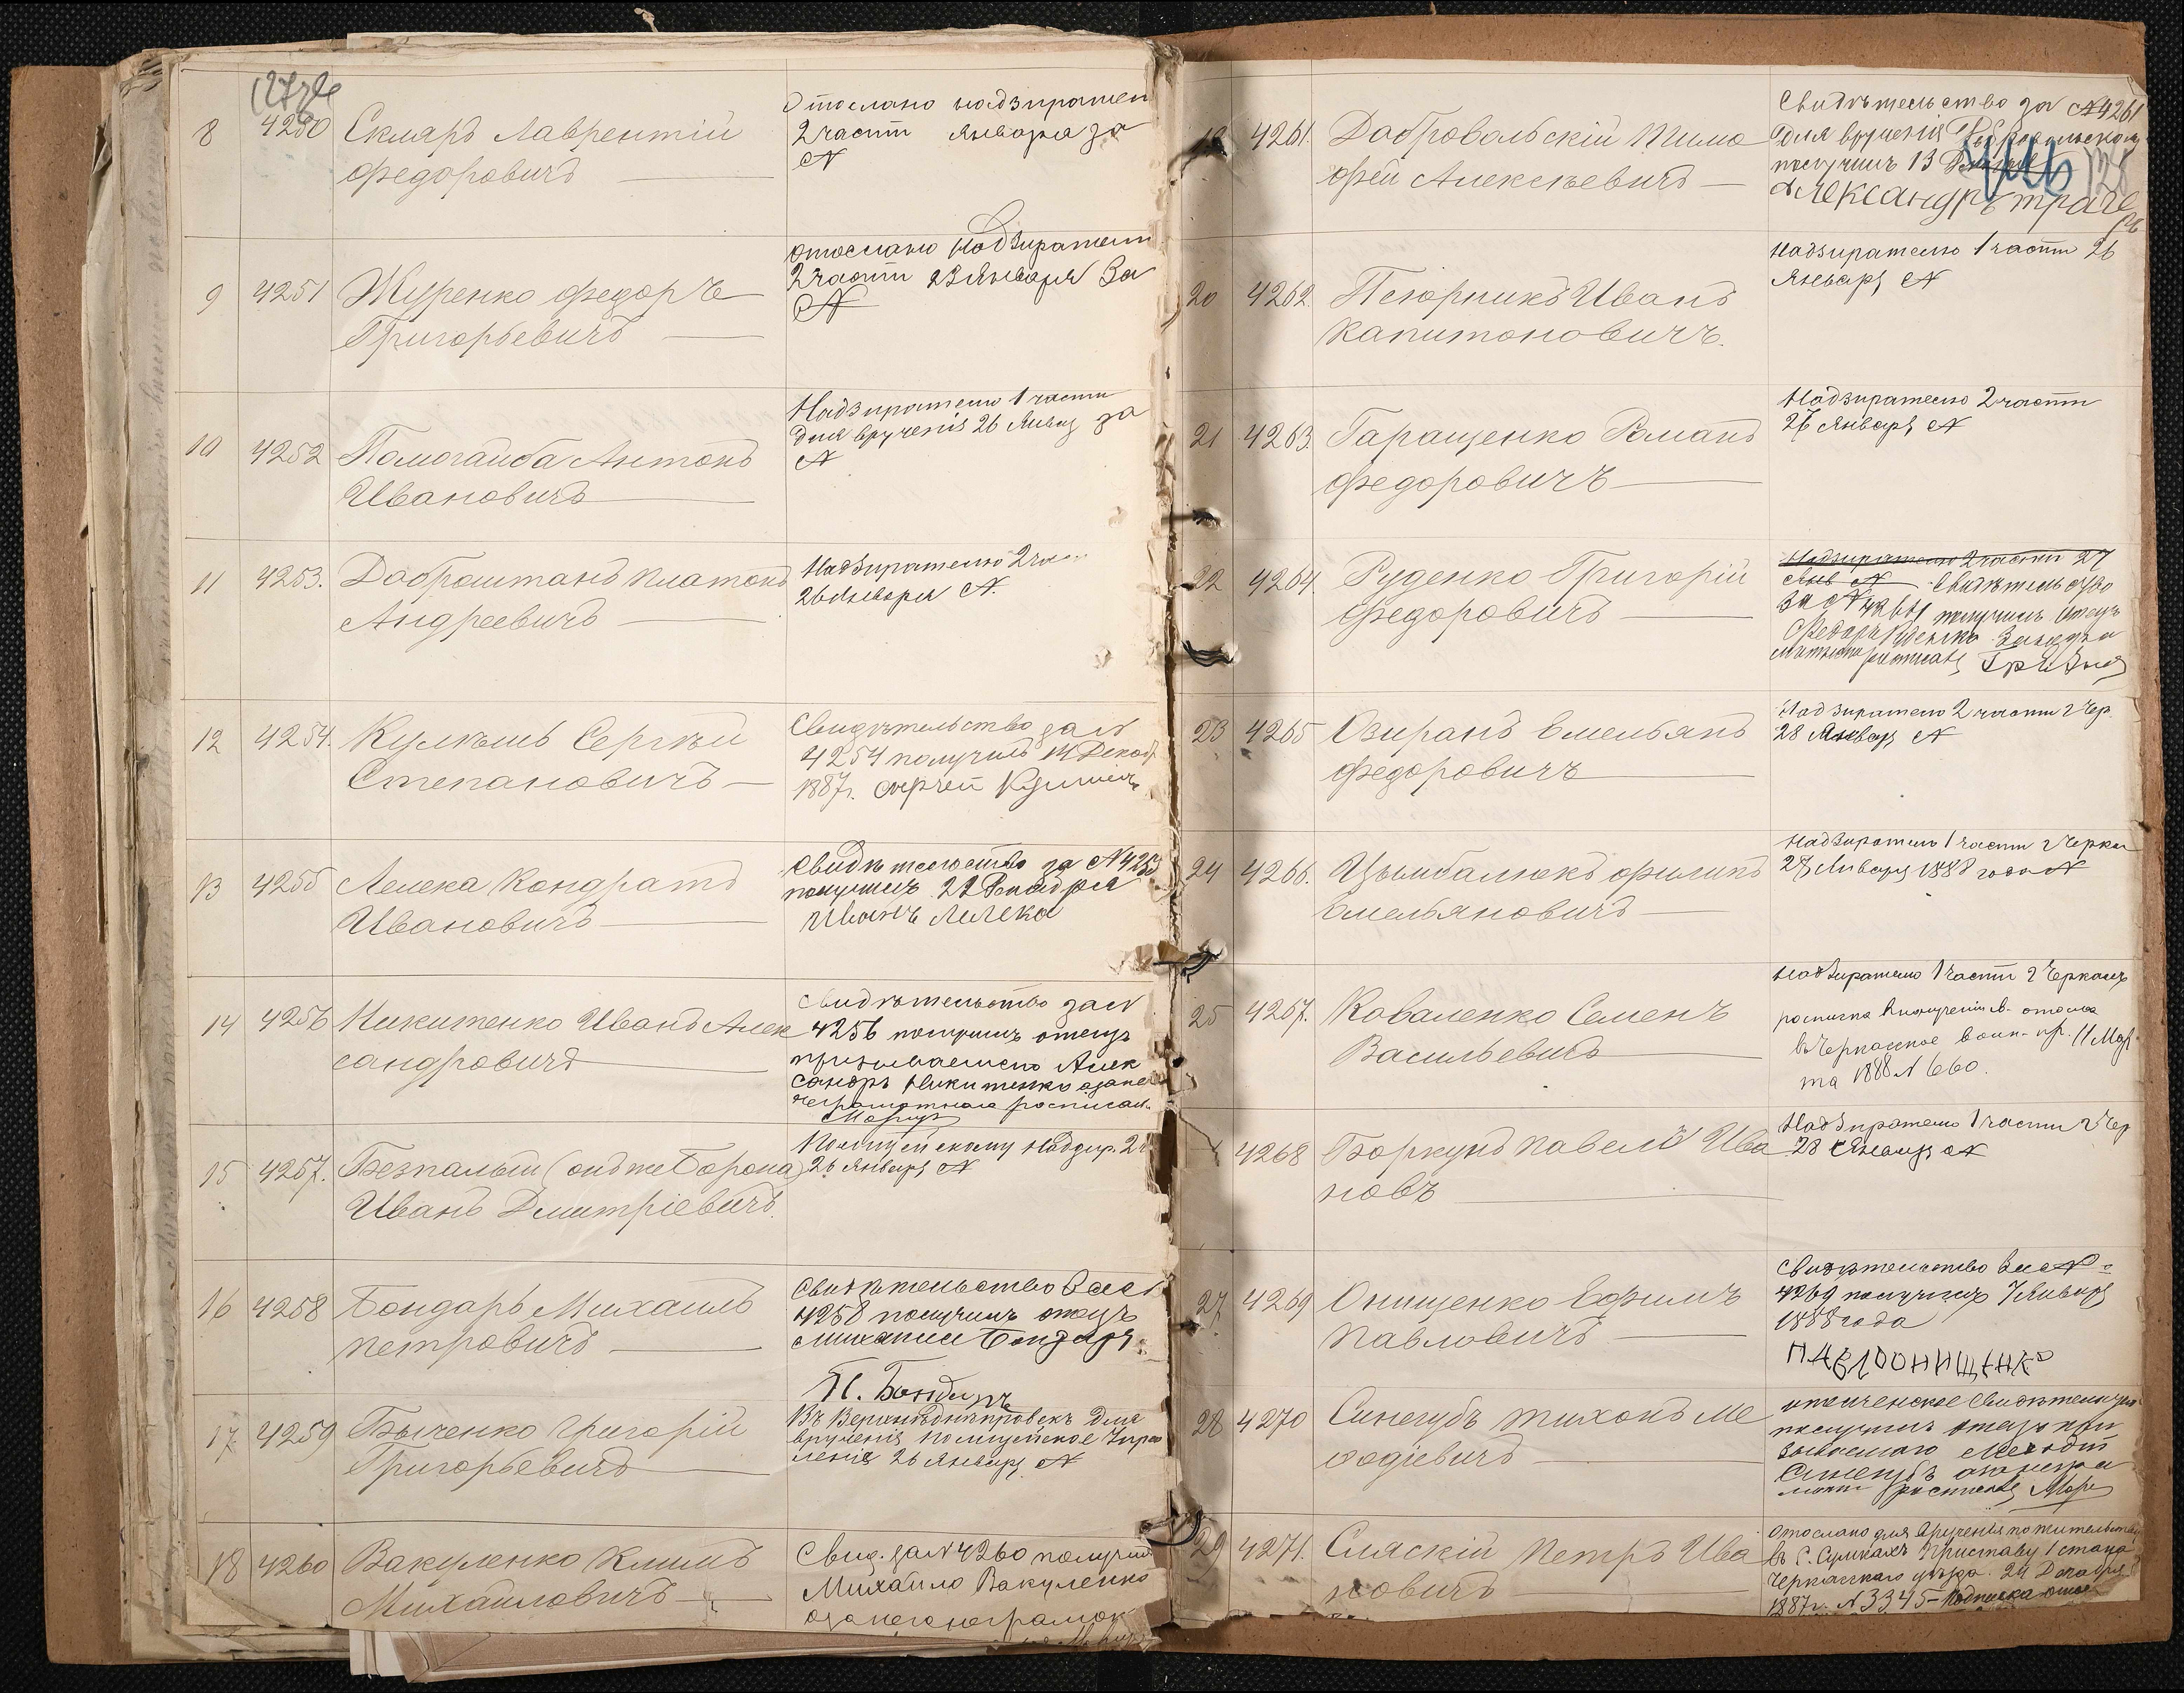 8 4250 Скляръ Лаврентій
Федоровичъ
Отослано надзирател
2 части Января за
№
9 4251 Журенко Федоръ
Григорьевичъ
Отослано Надзирателю
2 части 23 Января за
№
10 4252 Помогайба Антонъ
Ивановичъ
Надзирателю 1 части
для врученія 26 Январ за
№
11 4253. Доброштанъ Платонъ
Андреевичъ
Надзирателю 2
26 Января №.
12 4254. Кулишъ Сергѣй
Степановичъ
Свидѣтельство за №
4254 получилъ 14 Декаб.
1887г. Сергей
13 4255 Лелека Кондратъ
Ивановичъ
Свидѣтельство за № 4255
получилъ 22 Декабря
Иванъ Лелека
14 4256 Никитенко Иванъ Алек
сандровичъ
Свидѣтельство за №
4256 получилъ отецъ
призываемаго Алек
сандръ Никитенко а за него
неграмотнаго росписал.
15 4257. Безпалый (онъ же Борона)
Иванъ Дмитріевичъ.
Полицейскому Надзир. 2
26 Января №
16 4258 Бондарь Михаилъ
Петровичъ
Свидѣтельство за №
4258 получилъ отецъ
Михаила Бондаря
П. Бондарь
17. 4259 Быченко Григорій
Григорьевичъ
Въ Верхнеднѣпровскъ для
врученія Полицейское Упра
леніе 26 Января №
18 4260 Вакуленко Климъ
Михайловичъ
Свид. за № 4260 получилъ
Михайло Вакуленко
а за него неграмот
19 4261. Добровольскій Тимо
фей Алексѣевичъ
Свидѣтельство за № 4261
для врученія Добровольском
получилъ 13
Александръ
20 4262. Псюрникъ Иванъ
Капитоновичъ.
Надзирателю 1 части 26
Января №
21 4263. Гаращенко Романъ
Федоровичъ
Надзирателю 2 части
27 Января №
22 4264. Руденко Григорій
Федоровичъ
Надзирателю 2 части 27
Янв № Свидѣтельство
за № 4264 получилъ Отецъ
Федоръ Руденко
23 4265 Озиранъ Емельянъ
Федоровичъ
Надзирателю 2 части г Чер.
28 Января №
24 4266. Цымбалюкъ Филипъ
Емельяновичъ
Надзирателю 1 части г Черкас
27 Января 1888 года №
25 4267. Коваленко Семенъ
Васильевичъ
Надзирателю 1 части г Черкасъ
росписка в полученіи св. отосла
въ Черкасское воин. пр. 11 Мар
та 1888 № 660.
4268 Боркунъ Павелъ Ива
новъ
Надзирателю 1 части г Чер
28 Января №
27 4269 Онищенко Ефимъ
Павловичъ
Свидѣтельство за №
4269 получилъ 7 Января
1888 года
ПАВЛО ОНИЩЕНКО
28 4270 Синегубъ Тихонъ Ме
фодіевичъ
получилъ отецъ при
зываемаго Мефодій
Синегубъ а за негра
29 4271. Сляскій Петръ Ива
новичъ
Отослано для врученія по жительству
въ С. Сункахъ Приставу 1 стана
Черкасскаго уѣзда. 24 Декабря
1887г. № 3345 – Подписка